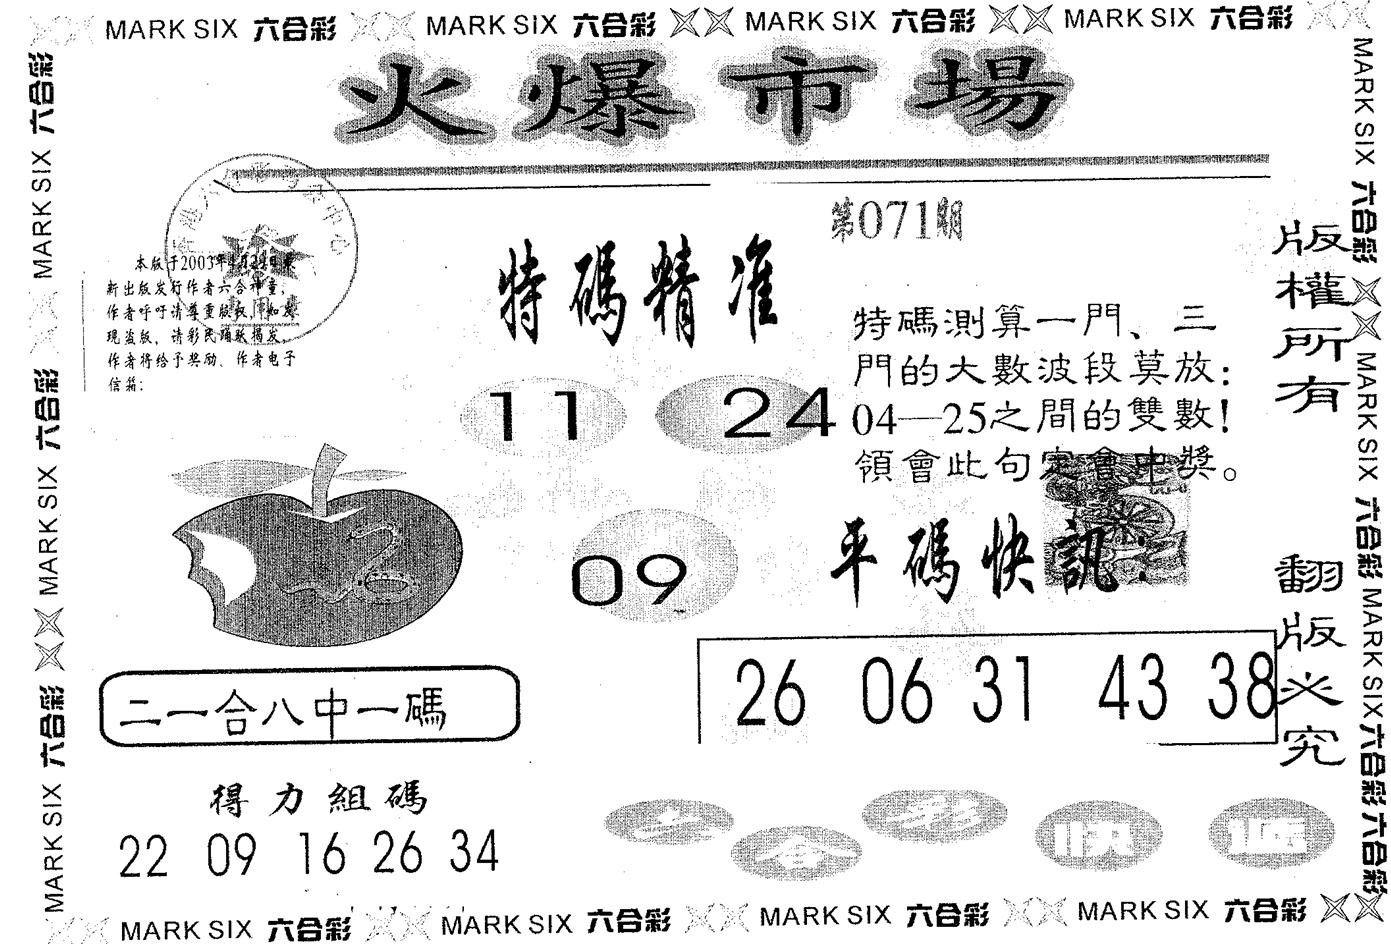 MARK SIX 六合彩 MARK SIX 六合彩 MARK SIX 六合彩 MARK SIX 六合彩
火爆市場
第071期
本版于2003年4月24日最
新出版发行作者六合神童,
作者呼吁请尊重版权,如发
现盗版,请彩民踊跃揭发,
作者将给予奖励、作者电子
信箱:
特碼精准
11 24
09
特碼測算一門、三
門的大數波段莫放:
04—25之間的雙數!
領會此句定會中獎。
平碼快訊:
26 06 31 43 38
二一合八中一碼
得力組碼
22 09 16 26 34
版權所有
翻版必究
MARK SIX 六合彩 MARK SIX 六合彩 MARK SIX 六合彩
MARK SIX 六合彩 MARK SIX 六合彩 MARK SIX 六合彩 六合彩
MARK SIX 六合彩 MARK SIX 六合彩 MARK SIX 六合彩 MARK SIX 六合彩